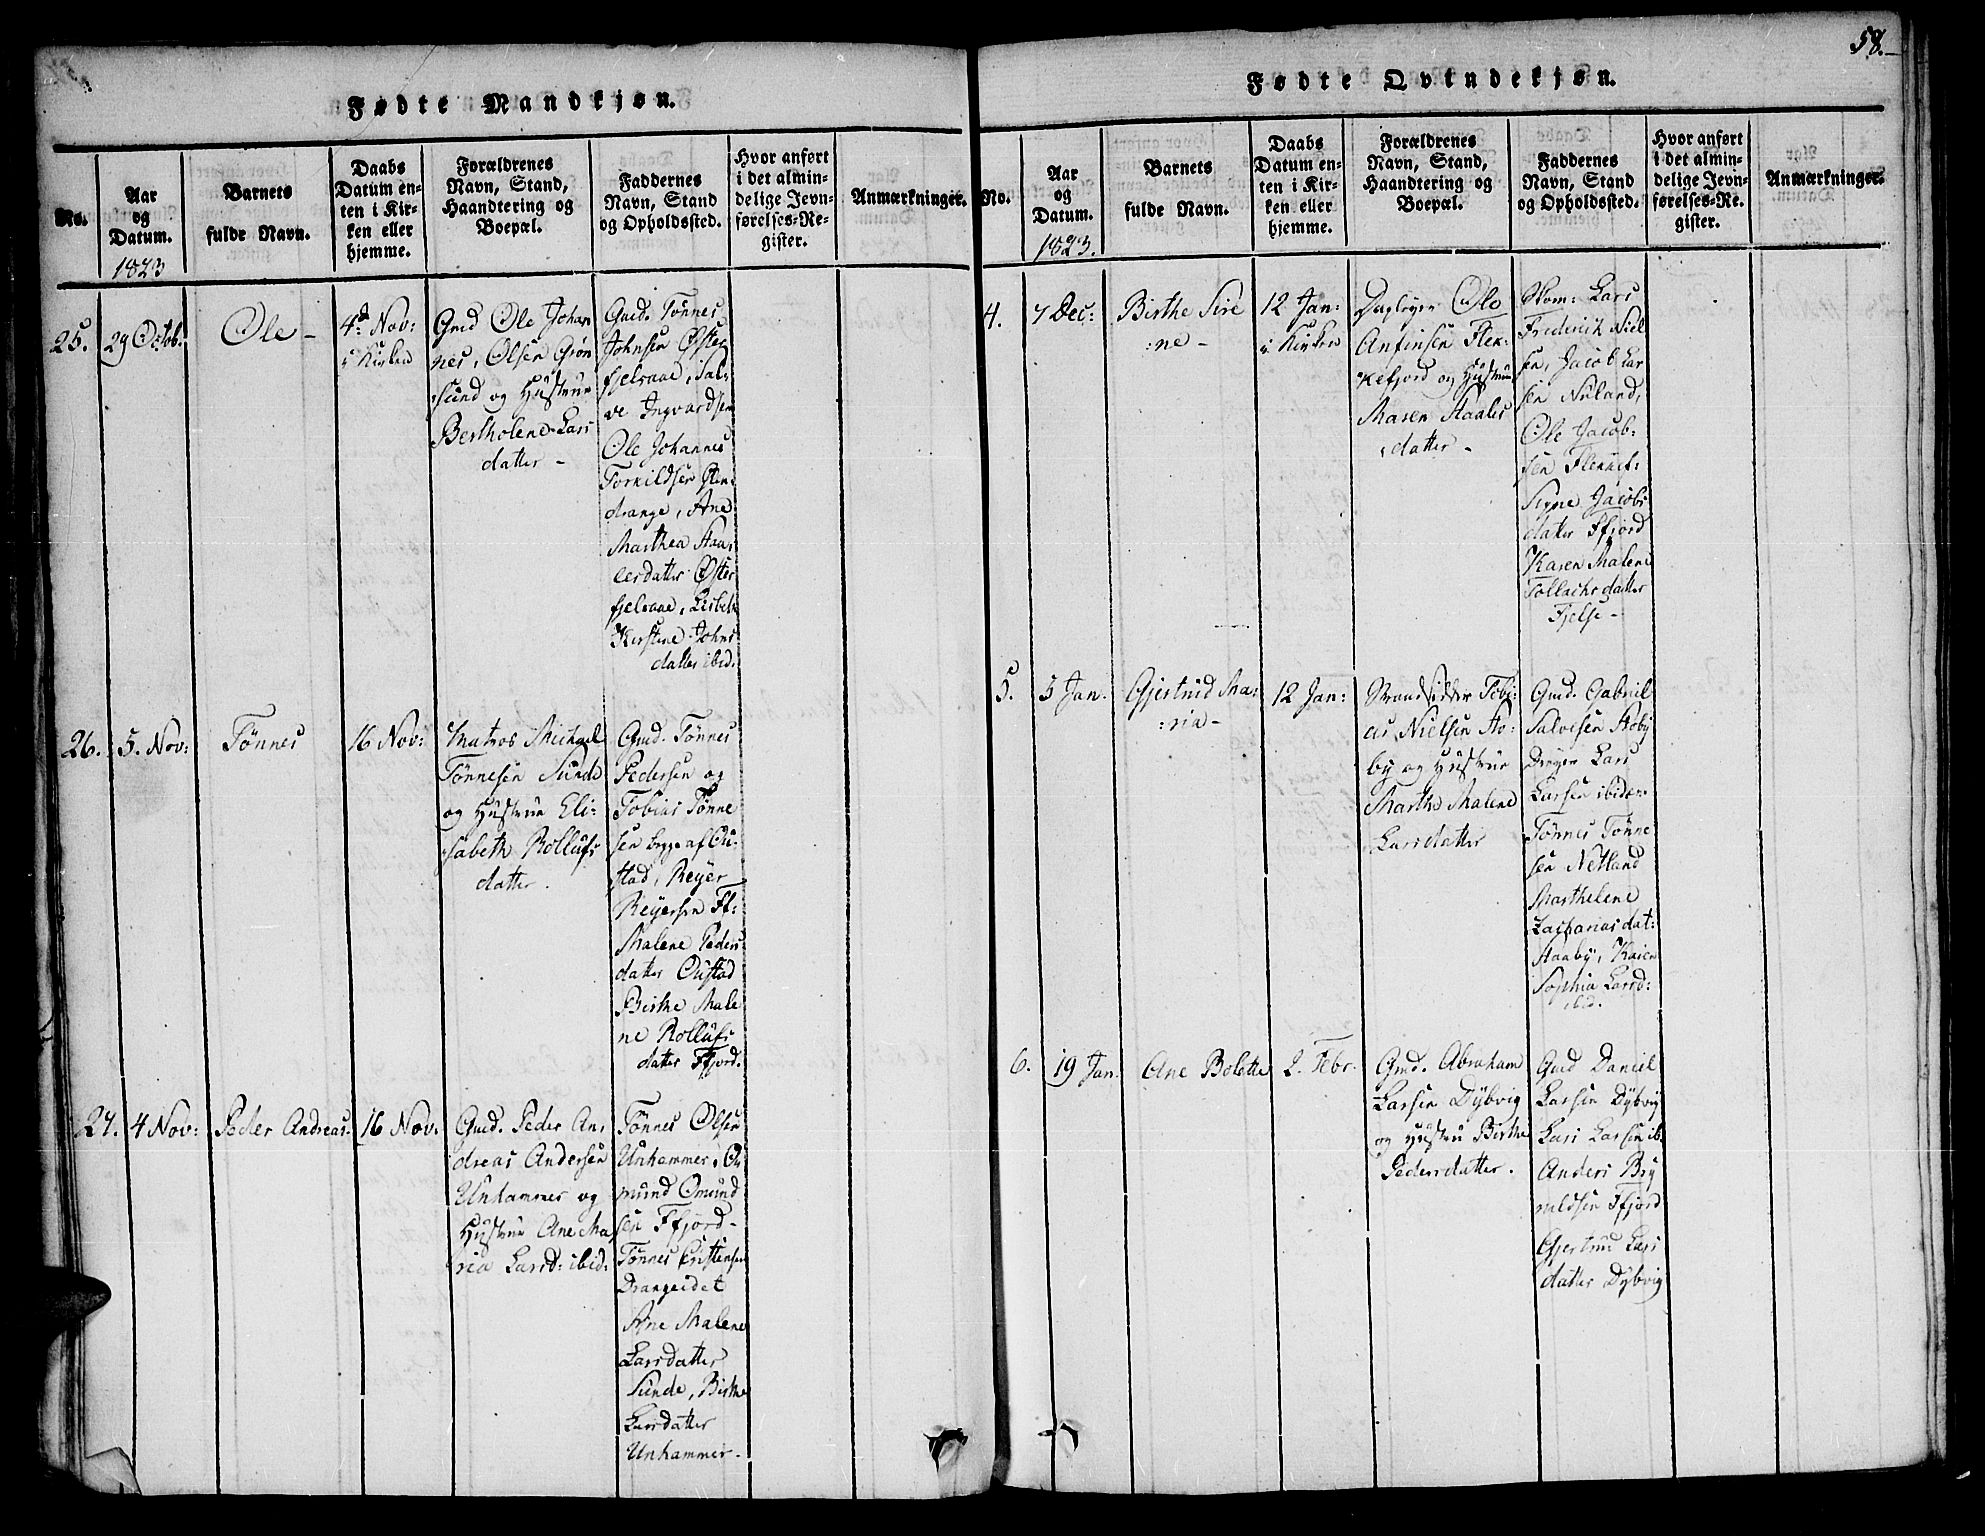 58.
Fødte Mandkjøn.
No.
Aar
og
Datum.
1823
Barnets
fulde Navn.
Daabs
Datum en-
ten i Kir-
ken eller
hjemme.
Forældrenes
Navn, Stand,
Haandtering og
Boepæl.
Faddernes
Navn, Stand
og Opholdssted.
Hvor anført
i det almin-
delige Jevn-
førelses-Re-
gister.
Anmærkninger.
25.
29 Octob:
Ole -
4d Nov:
i Kirken
Gmd Ole Johan
nes, Olsen Grøn
sund og Hustrue
Bertholene Lars
datter -
Gmd. Tønnes
Johnsen Øster
fjelsaae, Sal-
ve Ingvardsen
Ole Johannes
Torkildsen
drange, Ane
Marthea Staa-
lesdatter Øster
fjelsaae, Lisbeth
Kirstine Johns
datter ibid:
26.
5. Nov:
Tønnes
16 Nov:
Matros Michael
Tønnesen Sunde
og Hustrue Eli-
sabeth Rollufs
datter.
Gmd. Tønnes
Pedersen og
Tobias Tønne
sen begge af Ou-
stad, Reyer
Reyersen Ff:
Malene Peders
datter Oustad
Birthe Male
ne Rollufs
datter Ffjord.
27.
4 Nov:
Peder Andreas.
16 Nov.
Gmd. Peder An-
dreas Andersen
Unhammer og
Hustrue Ane Ma
ria Larsd: ibid:
Tønnes Olsen
Unhammer, O
mund Omund
sen Ffjord -
Tønnes Cristensen
Drangeidet
Ane Malene
Larsdatter
Sunde, Birthe
Larsdatter
Unhammer -
Fødte Qvindekjøn.
No.
Aar
og
Datum.
1823.
Barnets
fulde Navn.
Daabs
Datum en-
ten i Kir-
ken eller
hjemme.
Forældrenes
Navn, Stand,
Haandtering og
Boepæl.
Faddernes
Navn, Stand
og Opholdssted.
Hvor anført
i det almin-
delige Jevn-
førelses-Re-
gister.
Anmærkninger.
4.
7 Dec:
Birthe Sire
:ne -
12 Jan:
i Kirken
Daglejer Ole
Anfinsen Flek-
kefjord og Hustrue
Maren Staales
datter -
Skom: Lars
Frederik Niel
sen, Jacob Lar
sen Nuland,
Ole Jacob-
sen Flekkef:
Signe Jacobs
datter Ffjord
Karen Malene
Tollachsdatter
Fjelse -
5.
5 Jan.
Gjertrud Ma-
:ria -
12 Jan:
Strandsidder Tobi-
as Nielsen Sto-
by og Hustrue
Marthe Malene
Larsdatter
Gmd. Gabriel
Salvesen Stoby
Dreyer Lars
Larsen ibidem
Tønnes Tønne
sen Netland
Marthelene
Zachariasdat:
Staaby, Karen
Sophia Larsd:
ibid.
6.
19 Jan.
Ane Bolette
2. Febr.
Gmd. Abraham
Larsen Dybvig
og Hustru Birthe
Pedersdatter.
Gmd Daniel
Larsen Dybvig
Lars Larsen ib.
Anders Bry
nildsen Ffjord
Gjertrud Lars
datter Dybvig